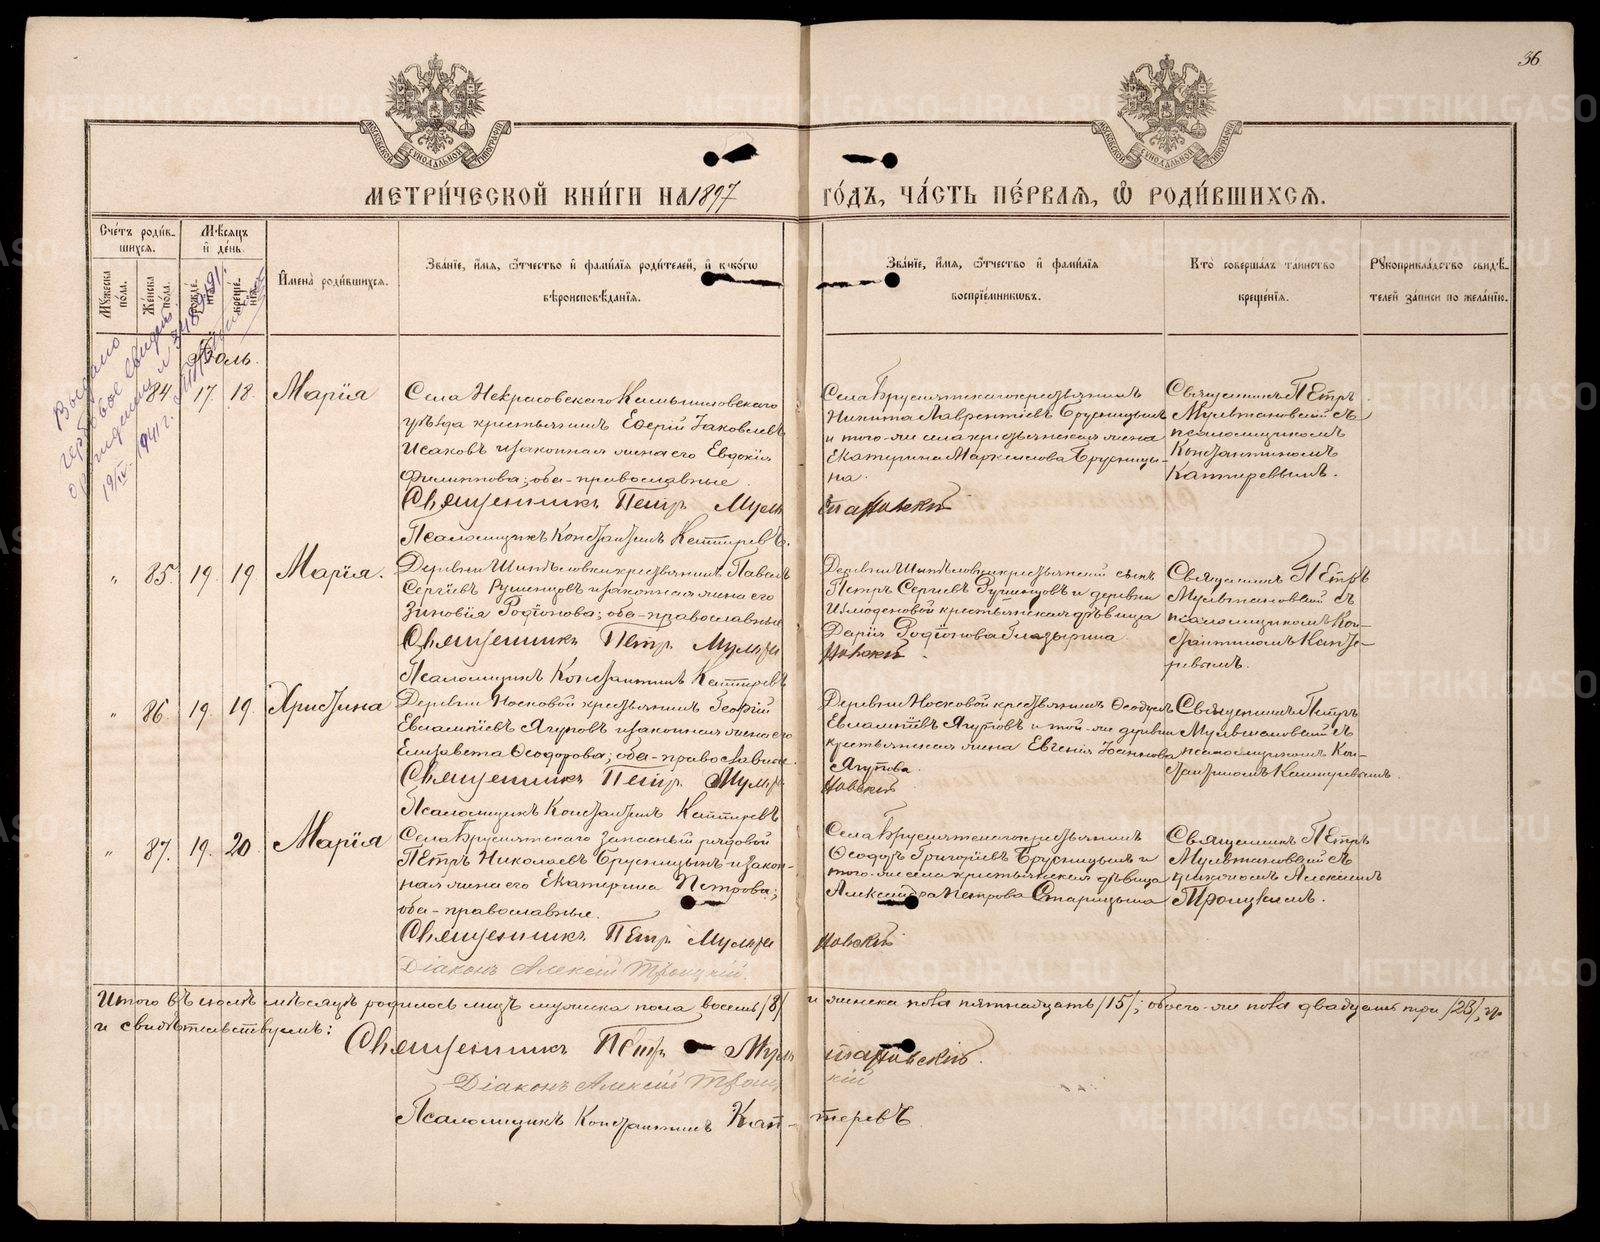 36
МОСКОВСКОЙ СѴНОДАЛЬНОЙ ТИПОГРАФІИ
МОСКОВСКОЙ СѴНОДАЛЬНОЙ ТИПОГРАФІИ
МЕТРИ́ЧЕСКОЙ КНИ́ГИ НА 1897 ГО́ДЪ, ЧА́СТЬ ПЕ́РВАЯ, Ѿ РОДИ́ВШИХСЯ.
Сче́тъ роди́в-
шихся.
Мѣсяцъ
и҆ де́нь.
Мꙋжеска
пола.
Же́нска
пола.
рожде-
нїя.
креще-
нїя.
И҆мена̀ роди́вшихся.
Зва́нїе, и҆́мя, ѻ҆́тчество и҆ фами́лїя роди́телей, и҆ како́гѡ
вѣроисповѣ́данїя.
Зва́нїе, и҆́мя, ѻ҆́тчество и҆ фами́лїя
воспрїе́мникѡвъ.
Кто̀ соверша́лъ та́инство
креще́нїя.
Рꙋкоприкла́дство свидѣ́-
телей за́писи по жела́нїю.
Выдано
гербовое свидет.
19/IV. 1941 г.
Іюль.
84 17. 18. Марія
Села Некрасовскаго Камышловскаго
уѣзда крестьянинъ Еферій Іаковлевъ
Исаковъ и законная жена его Евдокія
Филиппова; оба-православные.
Священникъ Петръ Мультановскій
Псаломщикъ Константинъ Каптеревъ.
Села Брусятскаго крестьянинъ
Никита Лаврентіевъ Брусницынъ
и того-же села крестьянская жена
Екатерина Марксимова Брусницы-
на.
Священникъ Петръ
Мультановскій съ
псаломщикомъ
Константиномъ
Каптеревымъ.
" 85. 19. 19 Марія.
Деревни Шипѣловки крестьянинъ Павелъ
Сергіевъ Рушенцовъ и законная жена его
Зиновія Родіонова; оба-православные
Священникъ Петръ Мультановскій.
Псаломщикъ Константинъ Каптеревъ
Деревни Шипѣловки крестьянскій сынъ
Петръ Сергіевъ Рушенцовъ и деревни
Измоденовой крестьянская дѣвица
Дарія Родіонова Глазырина.
Священникъ Петръ
Мультановскій съ
псаломщикомъ Кон-
стантиномъ Капте-
ревымъ.
" 86. 19. 19. Христина
Деревни Носковой крестьянинъ Георгій
Евлампіевъ Ягуповъ и законная жена его
Елизавета Ѳеодорова; оба-православные.
Священникъ Петръ Мультановскій
Псаломщикъ Константинъ Каптеревъ
Деревни Носковой крестьянинъ Ѳеодулъ
Евлампіевъ Ягуповъ и той-же деревни
крестьянская жена Евгенія Іоаннова
Ягупова.
Священникъ Петръ
Мультановскій съ
псаломщикомъ Кон-
стантиномъ Каптеревымъ.
" 87. 19. 20. Марія
Села Брусятскаго запасный рядовой
Петръ Николаевъ Брусницынъ и закон-
ная жена его Екатерина Петрова;
оба-православные.
Священникъ Петръ Мультановскій
Діаконъ Алексій Троицкій.
Села Брусятскаго крестьянинъ
Ѳеодоръ Григоріевъ Брусницынъ и
того-же села крестьянская дѣвица
Александра Петрова Старицына
Священникъ Петръ
Мультановскій съ
діакономъ Алексіемъ
Троицкимъ.
Итого въ іюлѣ мѣсяцѣ родилось лицъ мужеска пола восемь /8/ и женска пола пятнадцать /15/; обоего-же пола двадцать три /23/, въ
и свидѣтельствуемъ:
Священникъ Петръ Мультановскій.
Діаконъ Алексій Троицкій
Псаломщикъ Константинъ Каптеревъ.
METRIKI.GASO-URAL.RU